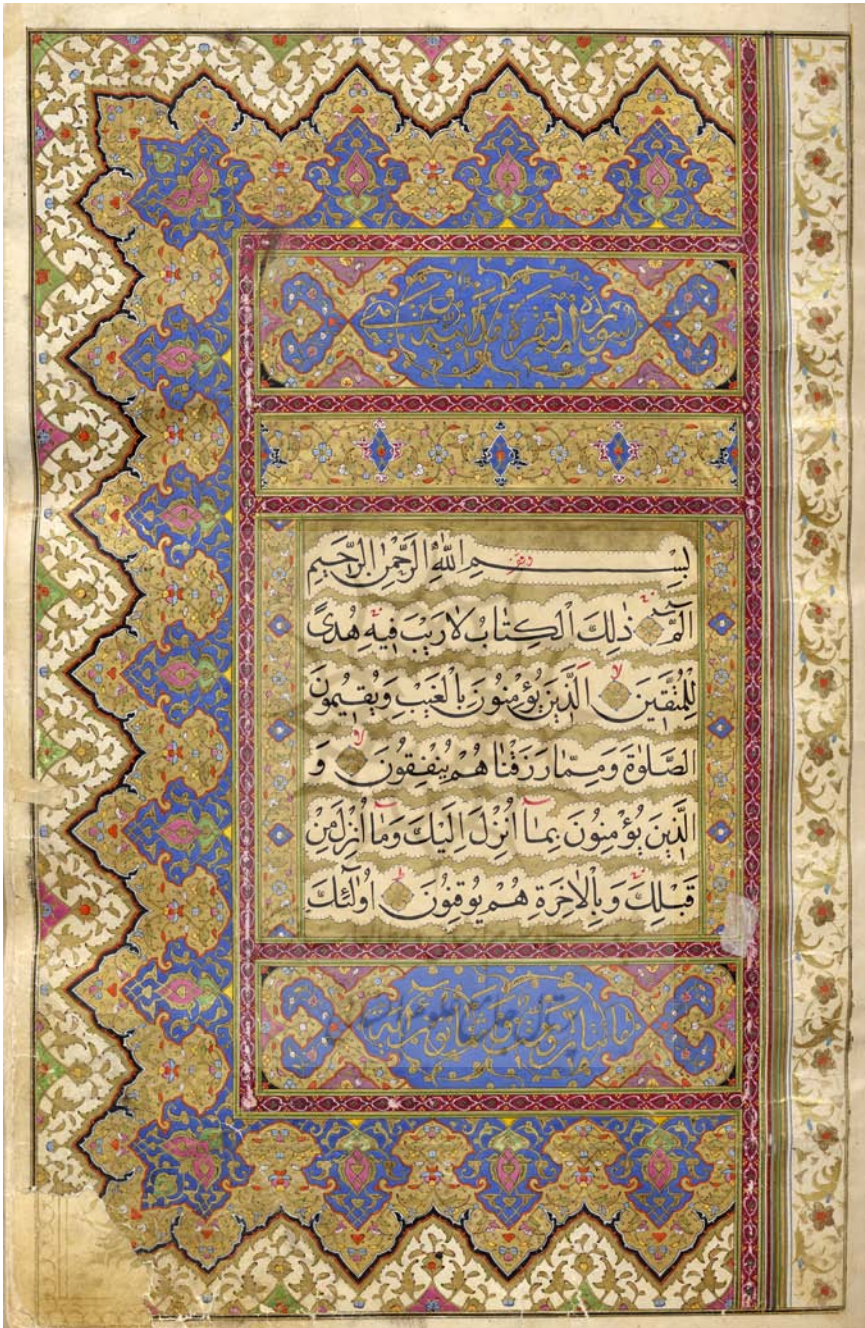 سورة البقرة
بِسْــــــمِ اللّٰهِ الرَّحْمٰنِ الرَّحٖيمِ
الٓمٓۚ ذٰلِكَ الْكِتَابُ لَا رَيْبَۚ فٖيهِۚ هُدًى
لِلْمُتَّقٖينَۙ اَلَّذٖينَ يُؤْمِنُونَ بِالْغَيْبِ وَيُقٖيمُونَ
الصَّلٰوةَ وَمِمَّا رَزَقْنَا هُمْ يُنْفِقُونَۙ وَ
الَّذٖينَ يُؤْمِنُونَ بِمَٓا اُنْزِلَ اِلَيْكَ وَمَٓا اُنْزِلَ مِنْ
قَبْلِكَۚ وَبِالْاٰخِرَةِ هُمْ يُوقِنُونَۜ اُولٰٓئِكَ